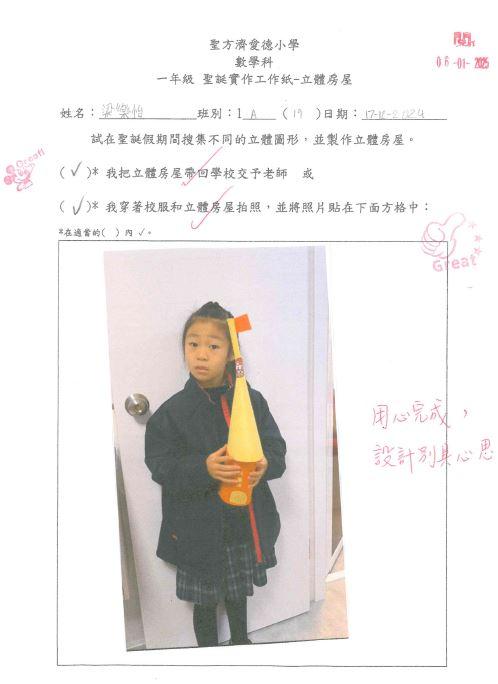 聖方濟愛德小學
數學科
一年級 聖誕實作工作紙-立體房屋
06-01-2025
姓名：梁樂怡 班別：1A（19）日期：17-12-2024
試在聖誕假期間搜集不同的立體圖形，並製作立體房屋。
Great!
(✓)* 我把立體房屋帶回學校交予老師 或
(✓)* 我穿著校服和立體房屋拍照，並將照片貼在下面方格中：
*在適當的( )內✓。
Great
用心完成，
設計別具心思